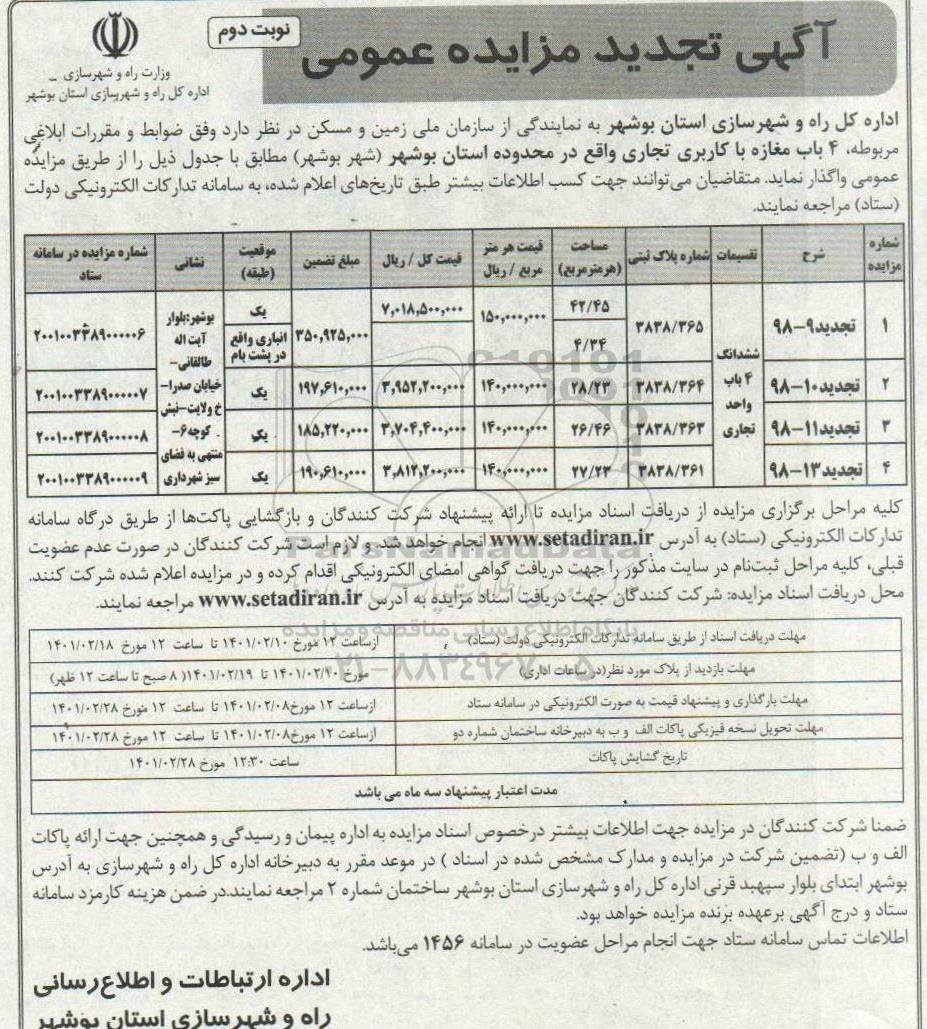 نوبت دوم
آگهی تجدید مزایده عمومی
وزارت راه و شهرسازی
اداره کل راه و شهرسازی استان بوشهر
اداره کل راه و شهرسازی استان بوشهر به نمایندگی از سازمان ملی زمین و مسکن در نظر دارد وفق ضوابط و مقررات ابلاغی
مربوطه، ۴ باب مغازه با کاربری تجاری واقع در محدوده استان بوشهر (شهر بوشهر) مطابق با جدول ذیل را از طریق مزایده
عمومی واگذار نماید. متقاضیان می‌توانند جهت کسب اطلاعات بیشتر طبق تاریخ‌های اعلام شده، به سامانه تدارکات الکترونیکی دولت
(ستاد) مراجعه نمایند.
شماره مزایده | شرح | تقسیمات | شماره پلاک ثبتی | مساحت (هرمترمربع) | قیمت هر متر مربع / ریال | قیمت کل / ریال | مبلغ تضمین | موقعیت (طبقه) | نشانی | شماره مزایده در سامانه ستاد
۱ | تجدید۹-۹۸ | ششدانگ ۴ باب واحد تجاری | ۳۸۳۸/۳۶۵ | ۴۲/۴۵ | ۱۵۰,۰۰۰,۰۰۰ | ۷,۰۱۸,۵۰۰,۰۰۰ | ۳۵۰,۹۲۵,۰۰۰ | یک | بوشهر:بلوار آیت اله طالقانی- خیابان صدرا- خ ولایت-نبش کوچه۶- منتهی به فضای سبز شهرداری | ۲۰۰۱۰۰۳۳۸۹۰۰۰۰۰۶
۴/۳۴ | انباری واقع در پشت بام
۲ | تجدید۱۰-۹۸ | ۳۸۳۸/۳۶۴ | ۲۸/۲۳ | ۱۴۰,۰۰۰,۰۰۰ | ۳,۹۵۲,۲۰۰,۰۰۰ | ۱۹۷,۶۱۰,۰۰۰ | یک | ۲۰۰۱۰۰۳۳۸۹۰۰۰۰۰۷
۳ | تجدید۱۱-۹۸ | ۳۸۳۸/۳۶۳ | ۲۶/۴۶ | ۱۴۰,۰۰۰,۰۰۰ | ۳,۷۰۴,۴۰۰,۰۰۰ | ۱۸۵,۲۲۰,۰۰۰ | یک | ۲۰۰۱۰۰۳۳۸۹۰۰۰۰۰۸
۴ | تجدید۱۳-۹۸ | ۳۸۳۸/۳۶۱ | ۲۷/۲۳ | ۱۴۰,۰۰۰,۰۰۰ | ۳,۸۱۲,۲۰۰,۰۰۰ | ۱۹۰,۶۱۰,۰۰۰ | یک | ۲۰۰۱۰۰۳۳۸۹۰۰۰۰۰۹
کلیه مراحل برگزاری مزایده از دریافت اسناد مزایده تا ارائه پیشنهاد شرکت کنندگان و بازگشایی پاکت‌ها از طریق درگاه سامانه
تدارکات الکترونیکی (ستاد) به آدرس www.setadiran.ir انجام خواهد شد. و لازم است شرکت کنندگان در صورت عدم عضویت
قبلی، کلیه مراحل ثبت‌نام در سایت مذکور را جهت دریافت گواهی امضای الکترونیکی اقدام کرده و در مزایده اعلام شده شرکت کنند.
محل دریافت اسناد مزایده: شرکت کنندگان جهت دریافت اسناد مزایده به آدرس www.setadiran.ir مراجعه نمایند.
مهلت دریافت اسناد از طریق سامانه تدارکات الکترونیکی دولت (ستاد) | ازساعت ۱۲ مورخ ۱۴۰۱/۰۲/۱۰ تا ساعت ۱۲ مورخ ۱۴۰۱/۰۲/۱۸
مهلت بازدید از پلاک مورد نظر(در ساعات اداری) | مورخ ۱۴۰۱/۰۲/۲۰ تا ۱۴۰۱/۰۲/۱۹( ۸ صبح تا ساعت ۱۲ ظهر)
مهلت بارگذاری و پیشنهاد قیمت به صورت الکترونیکی در سامانه ستاد | ازساعت ۱۲ مورخ۱۴۰۱/۰۲/۰۸ تا ساعت ۱۲ مورخ ۱۴۰۱/۰۲/۲۸
مهلت تحویل نسخه فیزیکی پاکات الف و ب به دبیرخانه ساختمان شماره دو | ازساعت ۱۲ مورخ۱۴۰۱/۰۲/۰۸ تا ساعت ۱۲ مورخ ۱۴۰۱/۰۲/۲۸
تاریخ گشایش پاکات | ساعت ۱۲:۳۰ مورخ ۱۴۰۱/۰۲/۲۸
مدت اعتبار پیشنهاد سه ماه می باشد
ضمنا شرکت کنندگان در مزایده جهت اطلاعات بیشتر درخصوص اسناد مزایده به اداره پیمان و رسیدگی و همچنین جهت ارائه پاکات
الف و ب (تضمین شرکت در مزایده و مدارک مشخص شده در اسناد ) در موعد مقرر به دبیرخانه اداره کل راه و شهرسازی به آدرس
بوشهر ابتدای بلوار سپهبد قرنی اداره کل راه و شهرسازی استان بوشهر ساختمان شماره ۲ مراجعه نمایند.در ضمن هزینه کارمزد سامانه
ستاد و درج آگهی برعهده برنده مزایده خواهد بود.
اطلاعات تماس سامانه ستاد جهت انجام مراحل عضویت در سامانه ۱۴۵۶ می‌باشد.
اداره ارتباطات و اطلاع‌رسانی
راه و شهرسازی استان بوشهر
ParsNamadData
پایگاه اطلاع رسانی مناقصه و مزایده
۰۲۱-۸۸۳۴۹۶۷۰-۵